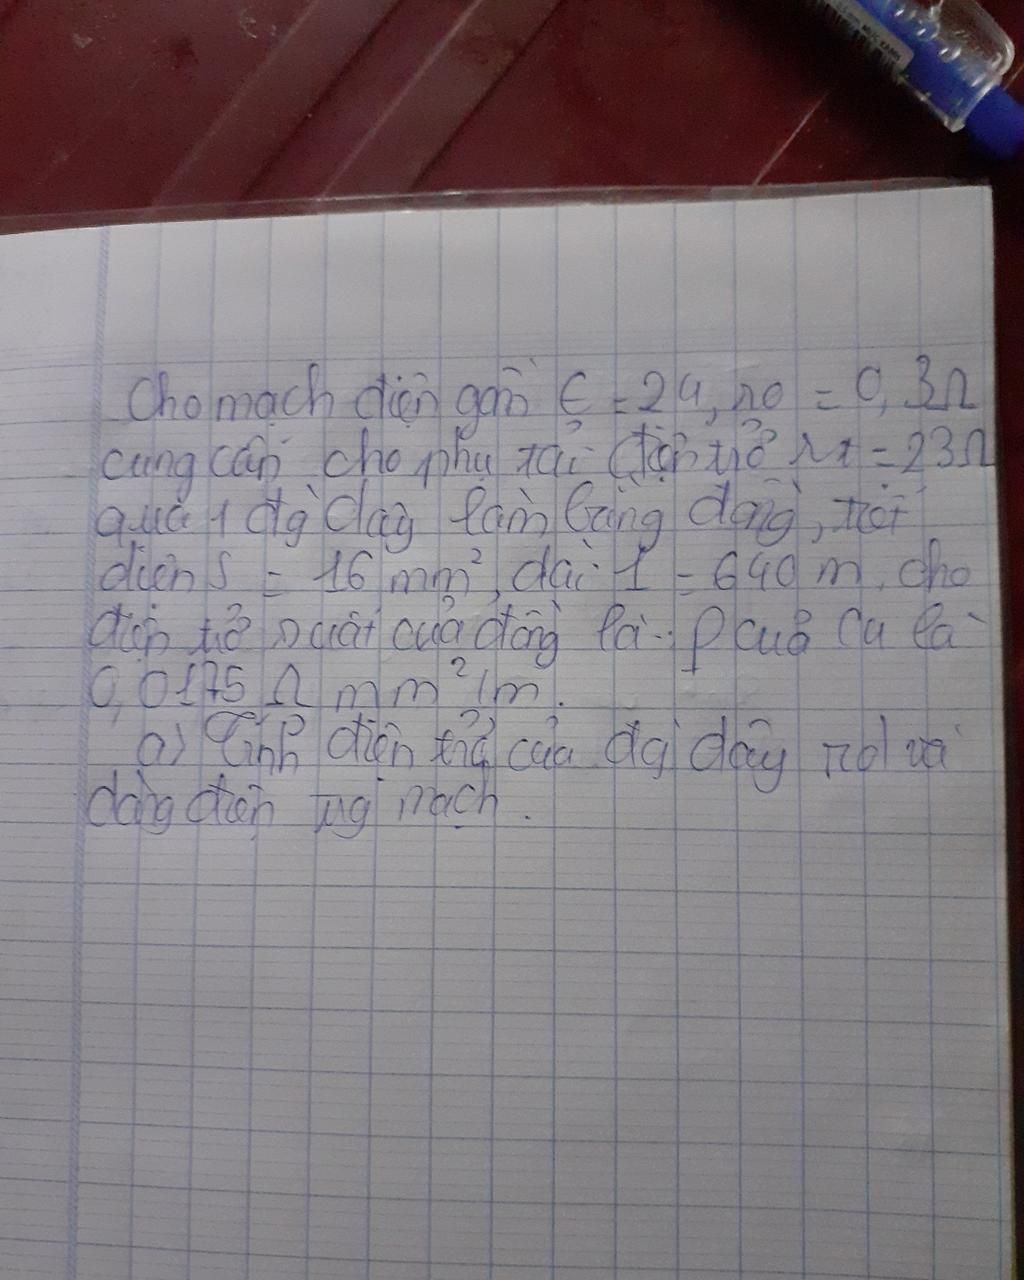 Cho mạch điện gồm E = 24, r0 = 0,3Ω
cung cấp cho phụ tải điện trở rt = 23Ω
qua 1 đg dây làm bằng đồng, tiết
diện S = 16 mm², dài l = 640 m, cho
điện trở suất của đồng là: ρ của Cu là
0,0175 Ω mm²/m.
a) Tính điện trở của đg dây rd và
dòng điện trg mạch.